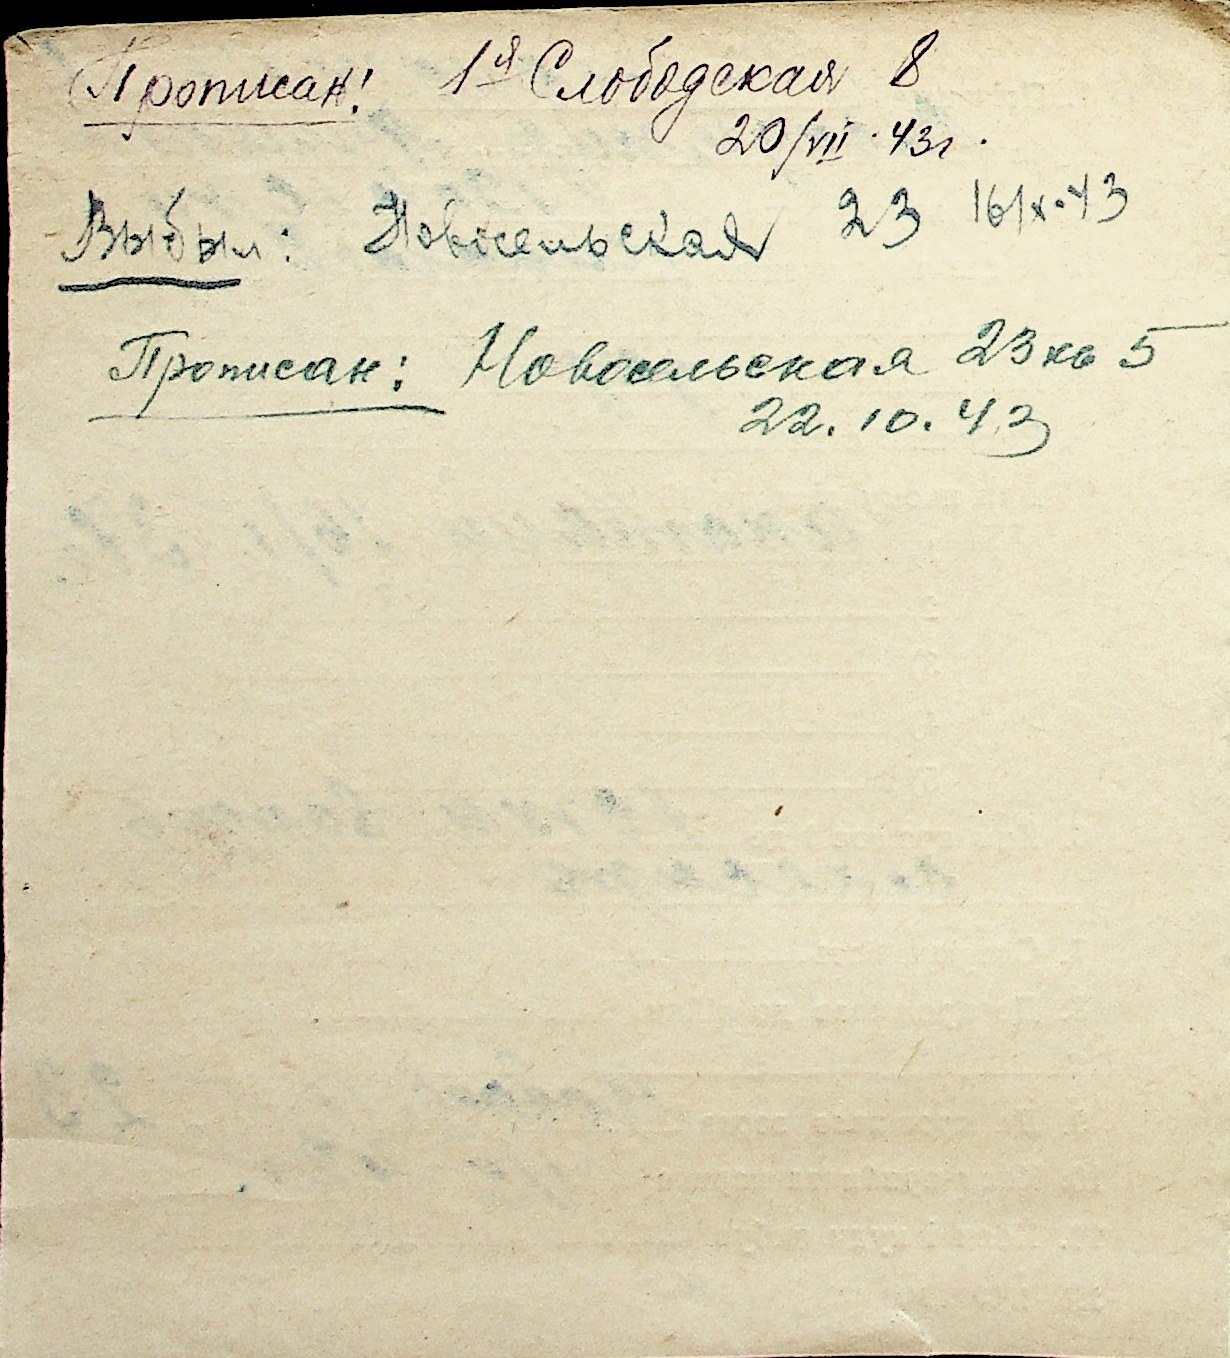 Прописан: 1я Слободская 8
20/VII·43г.
Выбыл: Новосельская 23 16/X·43
Прописан: Новосельская 23 кв 5
22.10.43